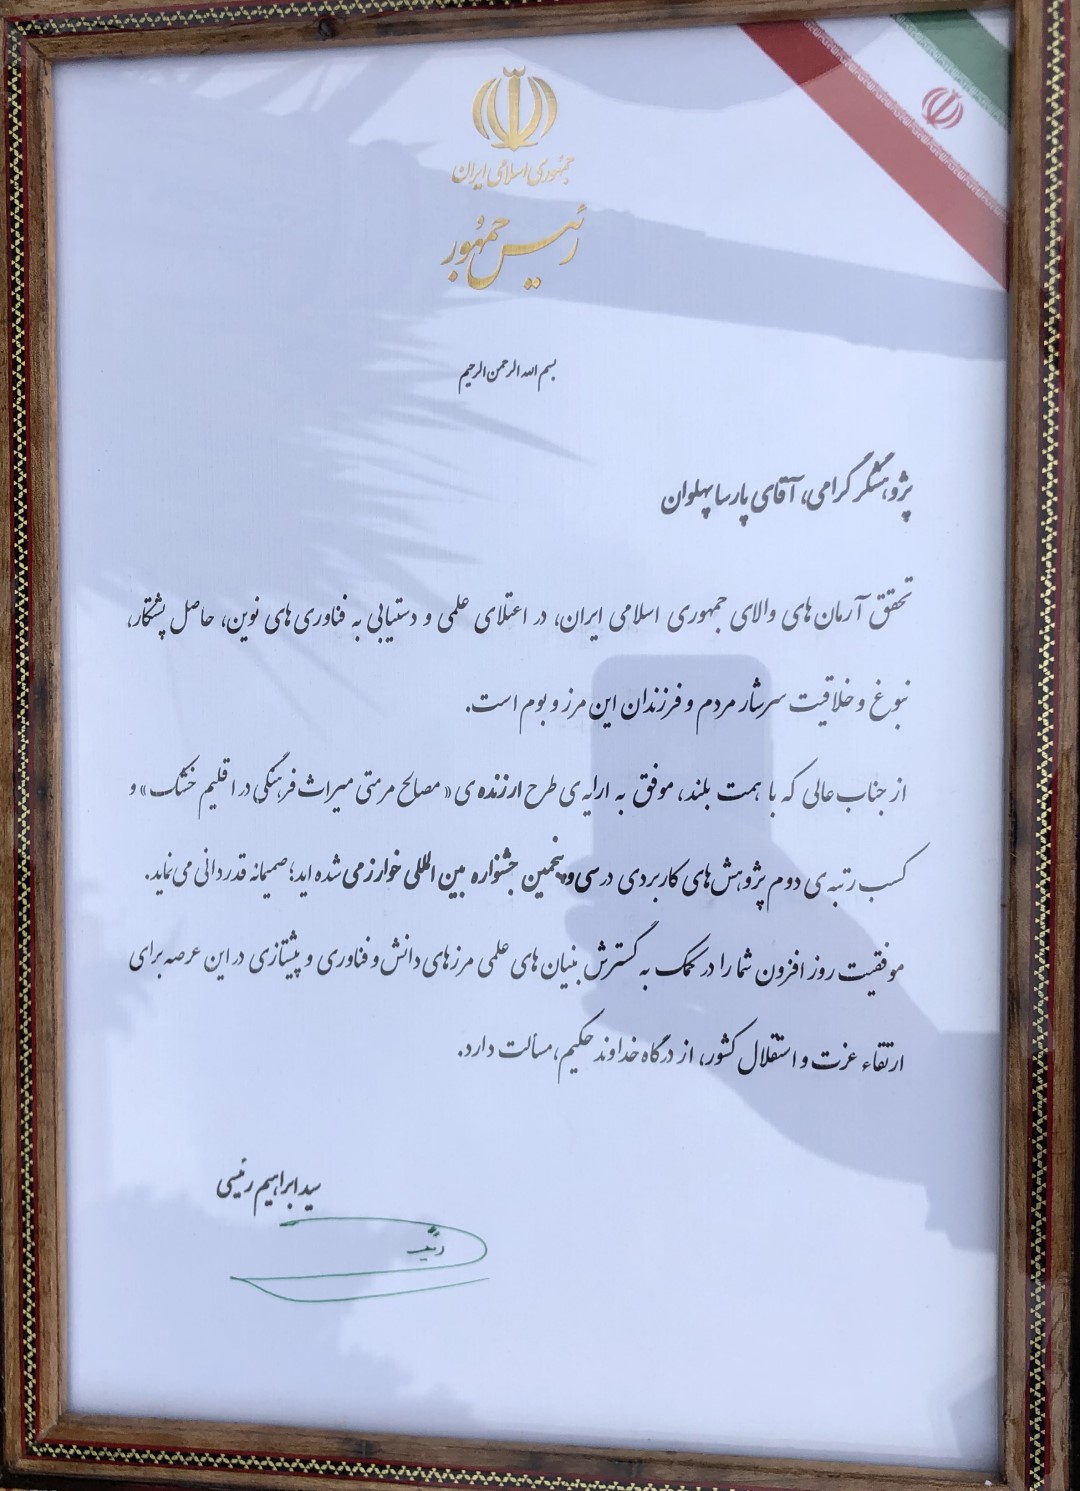 جمهوری اسلامی ایران
رئیس جمهور
بسم الله الرحمن الرحیم
پژوهشگر گرامی، آقای پارسا پهلوان
تحقق آرمان های والای جمهوری اسلامی ایران، در اعتلای علمی و دستیابی به فناوری های نوین، حاصل پشتکار،
نبوغ و خلاقیت سرشار مردم و فرزندان این مرز و بوم است.
از جناب عالی که با همت بلند، موفق به ارایه ی طرح ارزنده ی « مصالح مرمتی میراث فرهنگی در اقلیم خشک » و
کسب رتبه ی دوم پژوهش های کاربردی در سی و پنجمین جشنواره بین المللی خوارزمی شده اید؛ صمیمانه قدردانی می نماید.
موفقیت روز افزون شما را در کمک به گسترش بنیان های علمی مرزهای دانش و فناوری و پیشتازی در این عرصه برای
ارتقاء عزت و استقلال کشور، از درگاه خداوند حکیم، مسألت دارد.
سید ابراهیم رئیسی